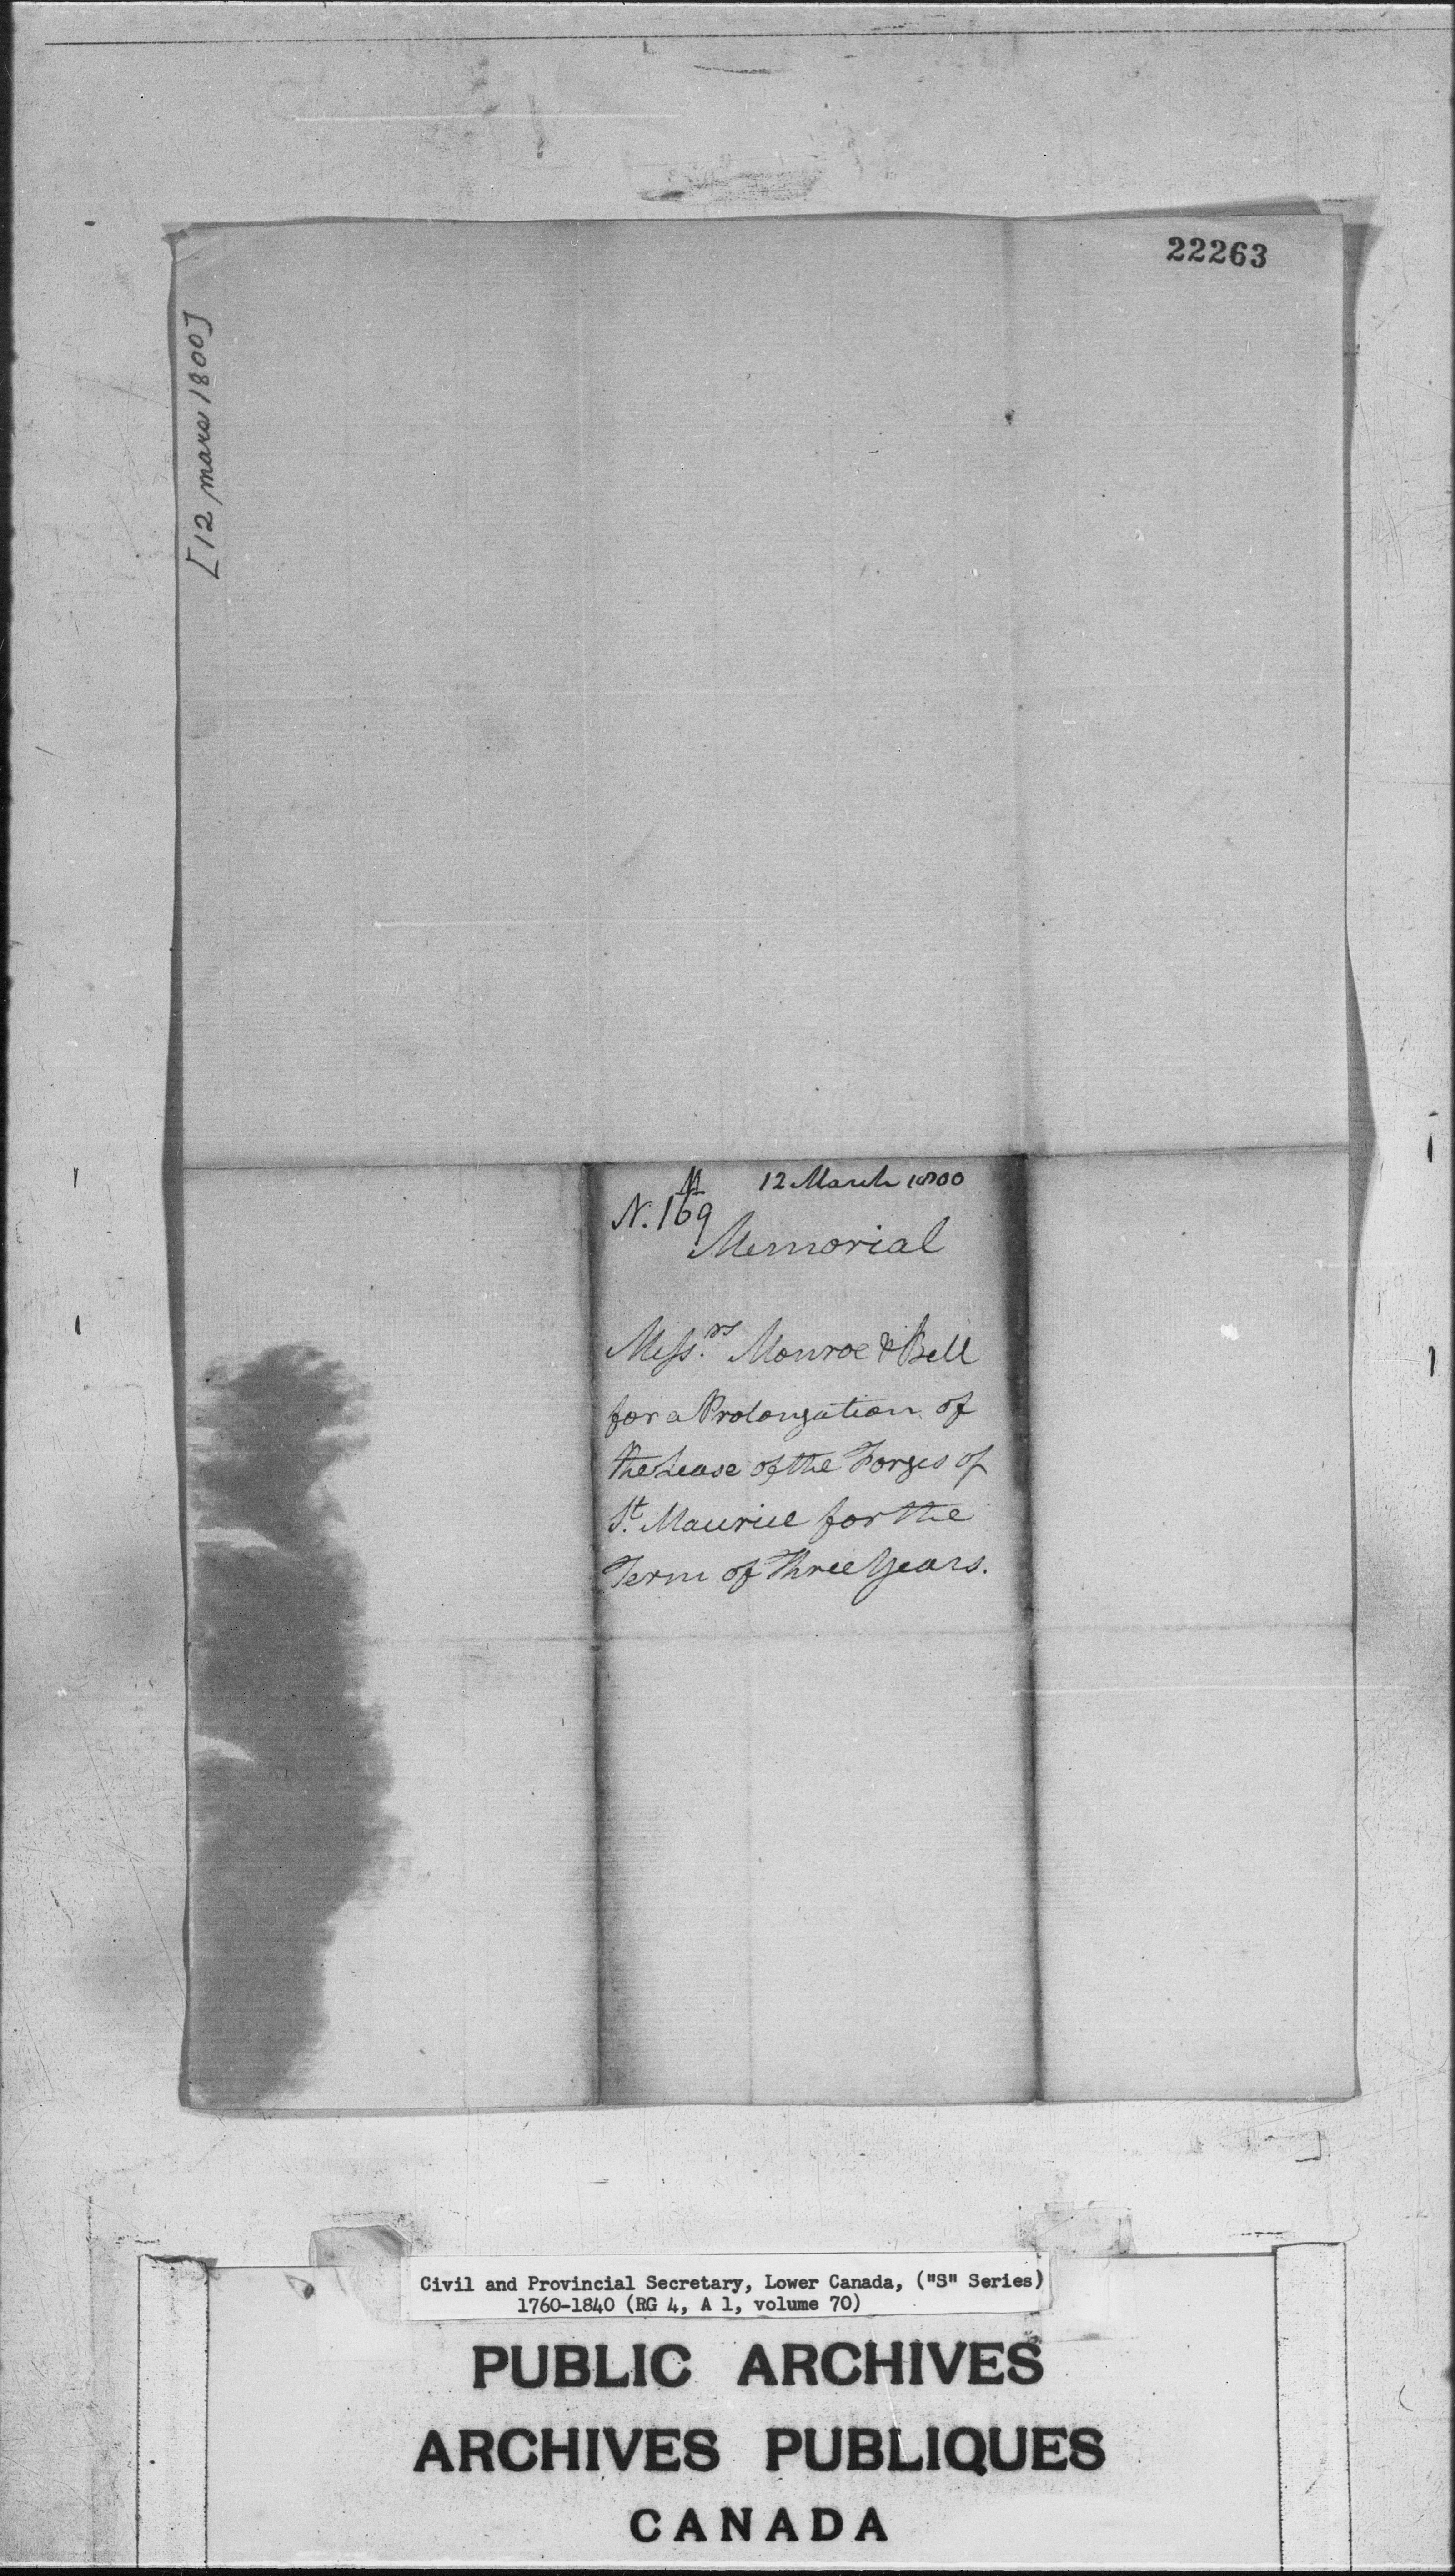 22263
[12 mars 1800]
M 12 March 1800
N. 169
Memorial
Mess.rs Monroe & Bell
for a Prolongation of
the Lease of the Forges of
St. Maurice for the
Term of Three Years.
Civil and Provincial Secretary, Lower Canada, ("S" Series)
1760-1840 (RG 4, A 1, volume 70)
PUBLIC ARCHIVES
ARCHIVES PUBLIQUES
CANADA